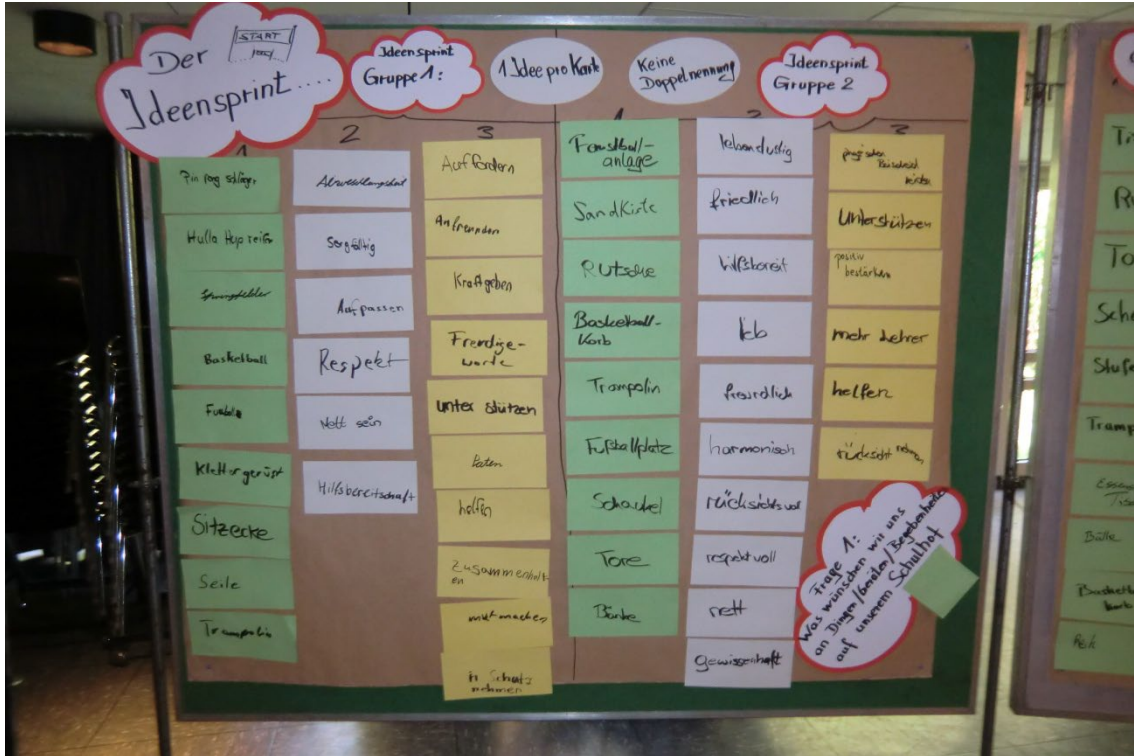 Der
START
Ideensprint....
Ideensprint
Gruppe 1:
1 Idee pro Karte
Keine
Doppelnennung
Ideensprint
Gruppe 2
1
Hulla Hup reifen
Basketball
Klettergerüst
Sitzecke
Seile
Trampolin
2
Sorgfältig
Aufpassen
Respekt
Nett sein
Hilfsbereitschaft
3
Auffordern
Anfreunden
Kraftgeben
unter stützen
Paten
helfen
Zusammenhalt-
en
mutmachen
in Schutz
nehmen
1
Faustball-
anlage
Sandkiste
Rutsche
Basketball-
Korb
Trampolin
Fußballplatz
Schaukel
Tore
Bänke
2
lebendig
friedlich
hilfsbereit
lieb
freundlich
harmonisch
rücksichtsvoll
respektvoll
nett
gewissenhaft
3
Unterstützen
positiv
bestärken
mehr Lehrer
helfen
rücksicht nehmen
Frage 1:
Was wünschen wir uns
an Dingen/Geräten/Begebenheiten
auf unserem Schulhof
Bälle